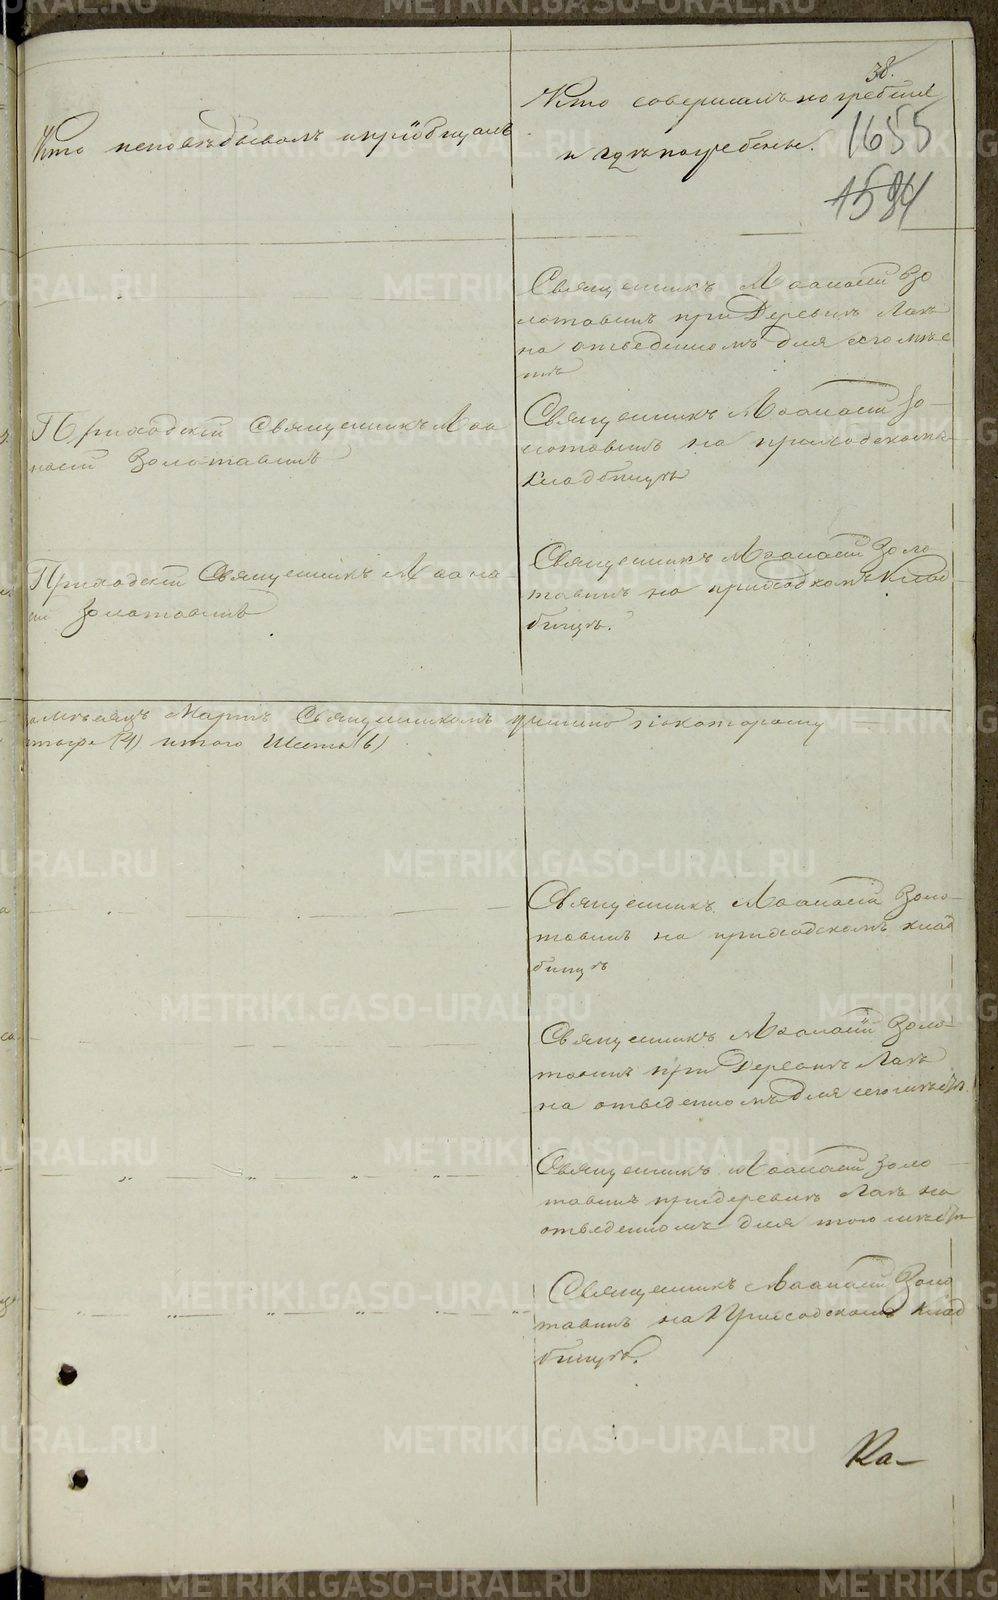 38.
Кто исповѣдывалъ и пріобщалъ
Кто совершалъ погребеніе
и гдѣ погребены.
1655
1584
Священникъ Аѳанасій Зо
лотавинъ при деревнѣ Лая
на отведенномъ для сего мѣс
тѣ
Приходскій Священникъ Аѳа
насій Золотавинъ
Священникъ Аѳанасій Зо-
лотавинъ на приходскомъ
кладбищѣ
Приходскій Священникъ Аѳана-
сій Золотавинъ
Священникъ Аѳанасій Золо
тавинъ на приходскомъ клад
бищѣ.
мѣсяцѣ Мартѣ Священникомъ
(4) итого Шесть (6)
Священникъ Аѳанасій Золо-
тавинъ на приходскомъ клад
бищѣ
Священникъ Аѳанасій Золо-
тавинъ при деревнѣ Лая
на отведенномъ для сего мѣстѣ
Священникъ Аѳанасій Золо
тавинъ при деревнѣ Лая на
отведенномъ для того мѣстѣ
Священникъ Аѳанасій Золо
тавинъ на Приходскомъ клад
бищѣ.
Ка-
METRIKI.GASO-URAL.RU